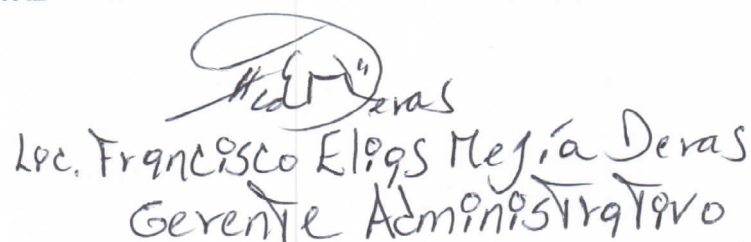 Deras
Lic. Francisco Elias Mejía Deras
Gerente Administrativo